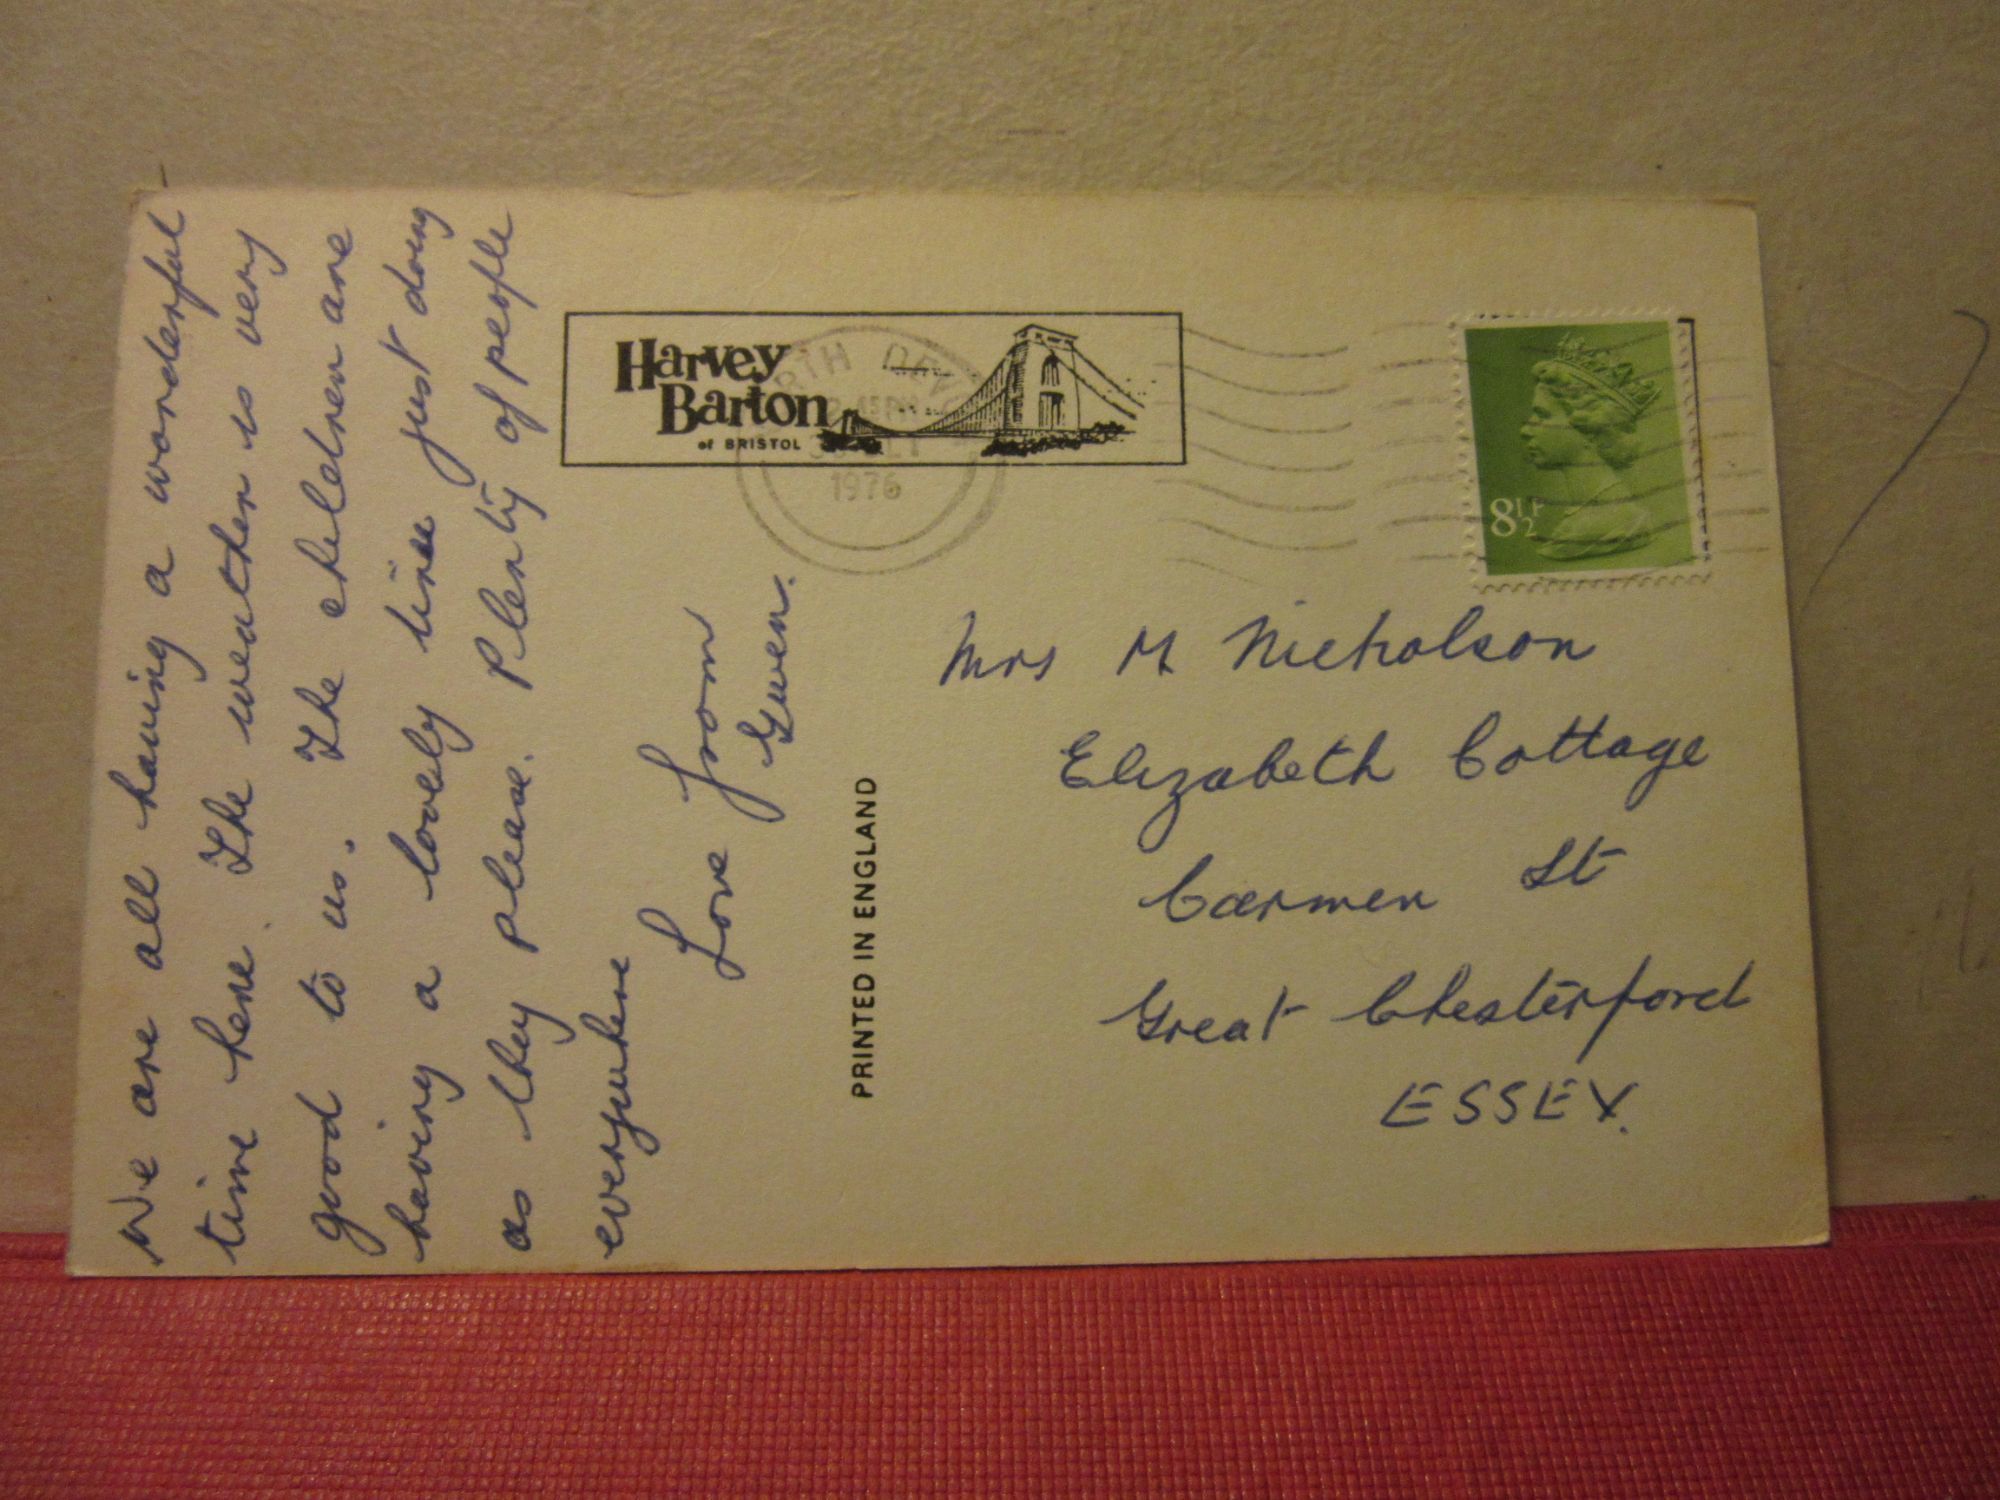 We are all having a wonderful
time here. The weather is very
good to us. The children are
having a lovely time just doing
as they please. Plenty of people
everywhere
Love from
Gwen.
Harvey
Barton
of BRISTOL
PRINTED IN ENGLAND
1976
8½P
Mrs M Nicholson
Elizabeth Cottage
Carmen St
Great Chesterford
ESSEX.